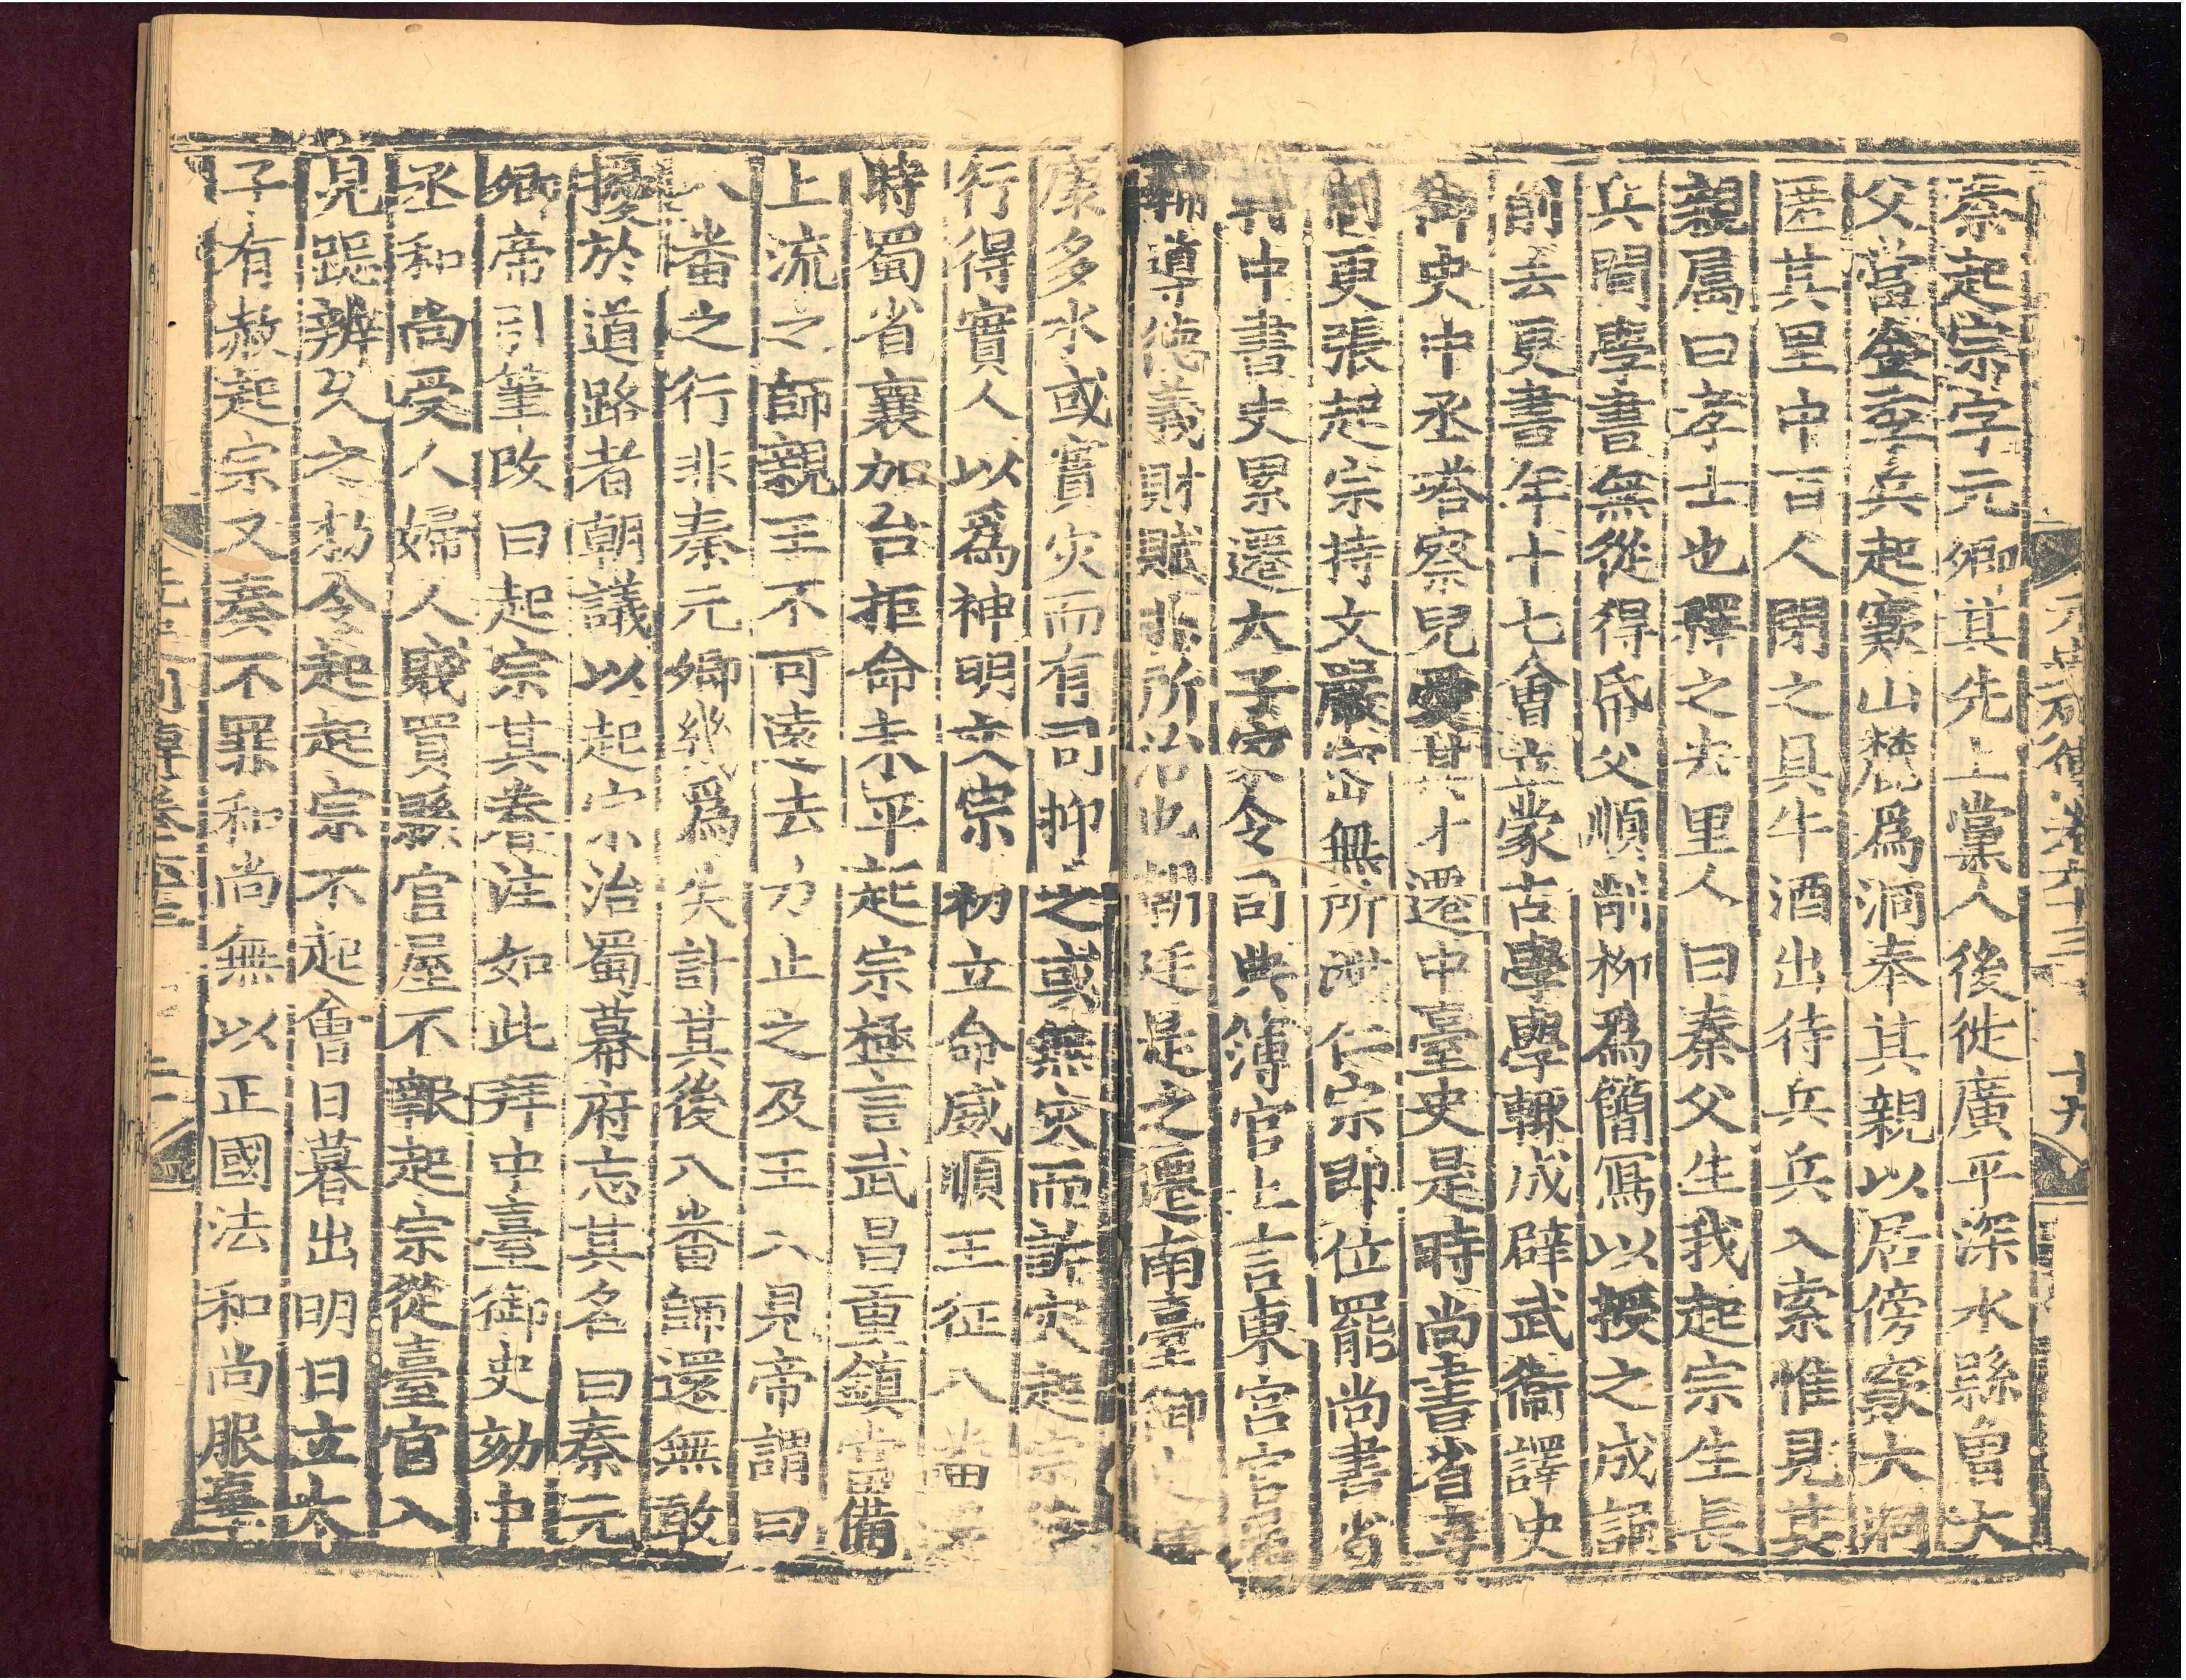 秦起宗字元卿其先上黨人後徙廣平深水縣曾大
父當金季兵起竄山麓爲洞奉其親以居傍竄大洞
匿其里中百人閉之具牛酒出待兵兵入索惟見其
親屬曰孝士也釋之去里人曰秦父生我起宗生長
兵間學書無從得帋父順削柳爲簡寫以授之成誦
削去更書年十七會立蒙古學學輒成辟武衞譯史
御史中丞塔察兒愛其才遷中臺史是時尚書省專
制更張起宗持文嚴密無所泄仁宗即位罷尚書省
中書史累遷太子家令司典簿官上言東宮官
輔導德義財賦非所治也朝廷是之遷南臺御史
康多水或實灾而有司抑之或無灾而訴灾起宗
行得實人以爲神明文宗初立命威順王征八番
時蜀省襄加台拒命未平起宗極言武昌重鎮當備
上流之師親王不可遠去力止之及王入見帝謂曰
八番之行非秦元卿幾爲失計其後八番師還無敢
擾於道路者朝議以起宗治蜀幕府忘其名曰秦元
卿帝引筆改曰起宗其眷注如此拜中臺御史劾中
丞和尚受人婦人賤買縣官屋不報起宗從臺官入
見跽辨久之勑令起起宗不起會日暮出明日立太
子有赦起宗又奏不罪和尚無以正國法和尚服辜